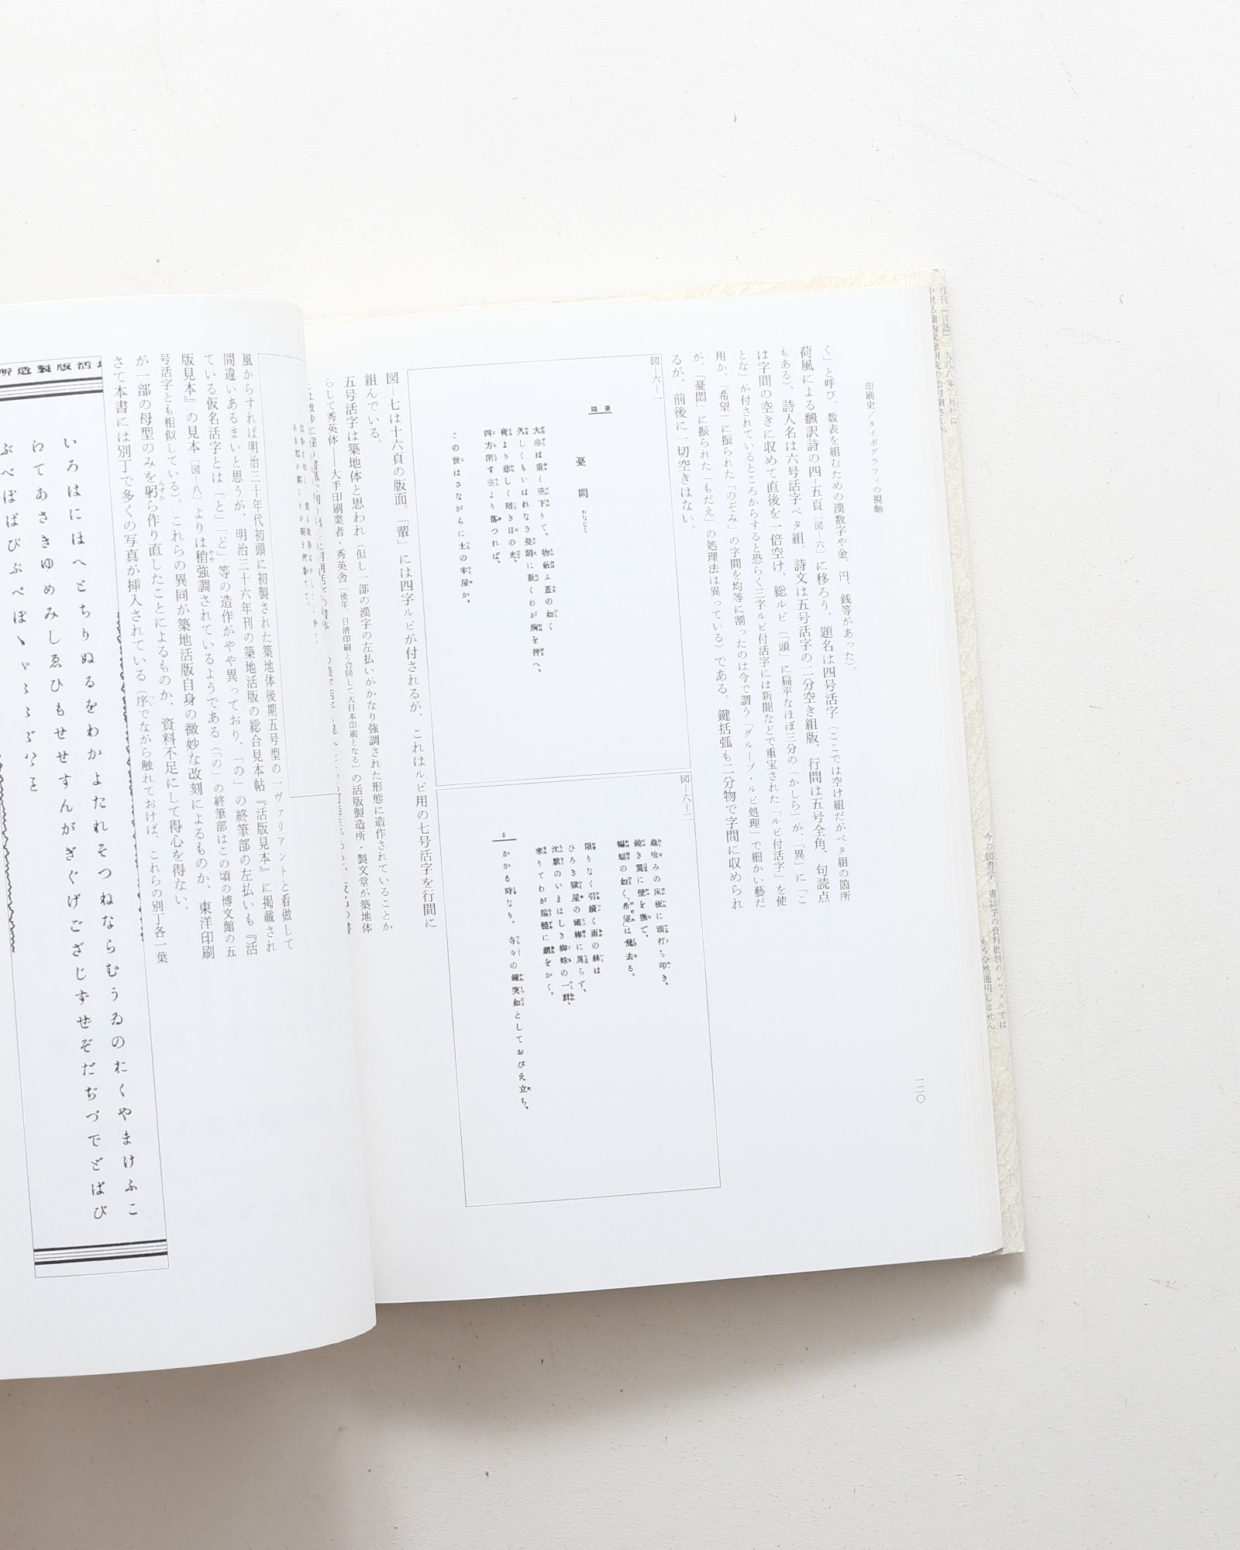 印刷史／タイポグラフィの視軸
く」と呼び、数表を組むための漢数字や金、円、銭等があった）。
荷風による翻訳詩の四―五頁［図―六］に移ろう。題名は四号活字（ここでは空け組だがベタ組の箇所
もある）、詩人名は六号活字ベタ組、詩文は五号活字の二分空き組版、行間は五号全角、句読点
は字間の空きに収めて直後を一倍空け、総ルビ（「頭」に扁平なほぼ三分の「かしら」が、「異」に「こ
とな」が付されているところからすると恐らく三字ルビ付活字には新聞などで重宝された「ルビ付活字」を使
用か、「希望」に振られた「のぞみ」の字間を均等に割ったのは今で謂う「グループ・ルビ処理」で細かい藝だ
が、「憂悶」に振られた「もだえ」の処理法は異っている）である。鍵括弧も二分物で字間に収められ
るが、前後に一切空きはない。
図―六―一
憂悶
大空は重く垂下りて、物蔽ふ蓋の如く
久しくもいはれなき憂悶に歎くわが胸を押へ、
夜より悲しく暗き日の光、
四方閉す空より落つれば、
この世はさながらに土の牢屋か、
図―六―二
蟲喰みの床板に頭打ち叩き、
鈍き翼に壁を撫で、
蝙蝠の如く、希望は飛去る。
限りなく引續く雨の絲は
ひろき獄屋の鐵棒に異らず、
沈默のいまはしき蜘蛛の一群、
來りてわが腦髓に網をかく。
かかる時なり。寺々の鐘突如としておびえ立ち、
図―七は十六頁の版面、「輩」には四字ルビが付されるが、これはルビ用の七号活字を行間に
組んでいる。
五号活字は築地体と思われ（但し一部の漢字の左払いがかなり強調された形態に造作されていることか
らして秀英体――大手印刷業者・秀英舎［後年、日清印刷と合同して大日本印刷となる］の活版製造所・製文堂が築地体
一二〇
風からすれば明治三十年代初頭に初製された築地体後期五号型の一ヴァリアントと看做して
間違いあるまいと思うが、明治三十六年刊の築地活版の総合見本帖『活版見本』に掲載され
ている仮名活字とは「と」「ど」等の造作がやや異っており、「の」の終筆部の左払いも『活
版見本』の見本［図―八］よりは稍強調されているようである（「の」の終筆部はこの頃の博文館の五
号活字とも相似している）。これらの異同が築地活版自身の微妙な改刻によるものか、東洋印刷
が一部の母型のみを躬ら作り直したことによるものか、資料不足にして得心を得ない。
さて本書には別丁で多くの写真が挿入されている（序でながら触れておけば、これらの別丁各一葉
所造製版活
いろはにほへとちりぬるをわかよたれそつねならむうゐのおくやまけふこ
えてあさきゆめみしゑひもせすんがぎぐげござじずぜぞだぢづでどばび